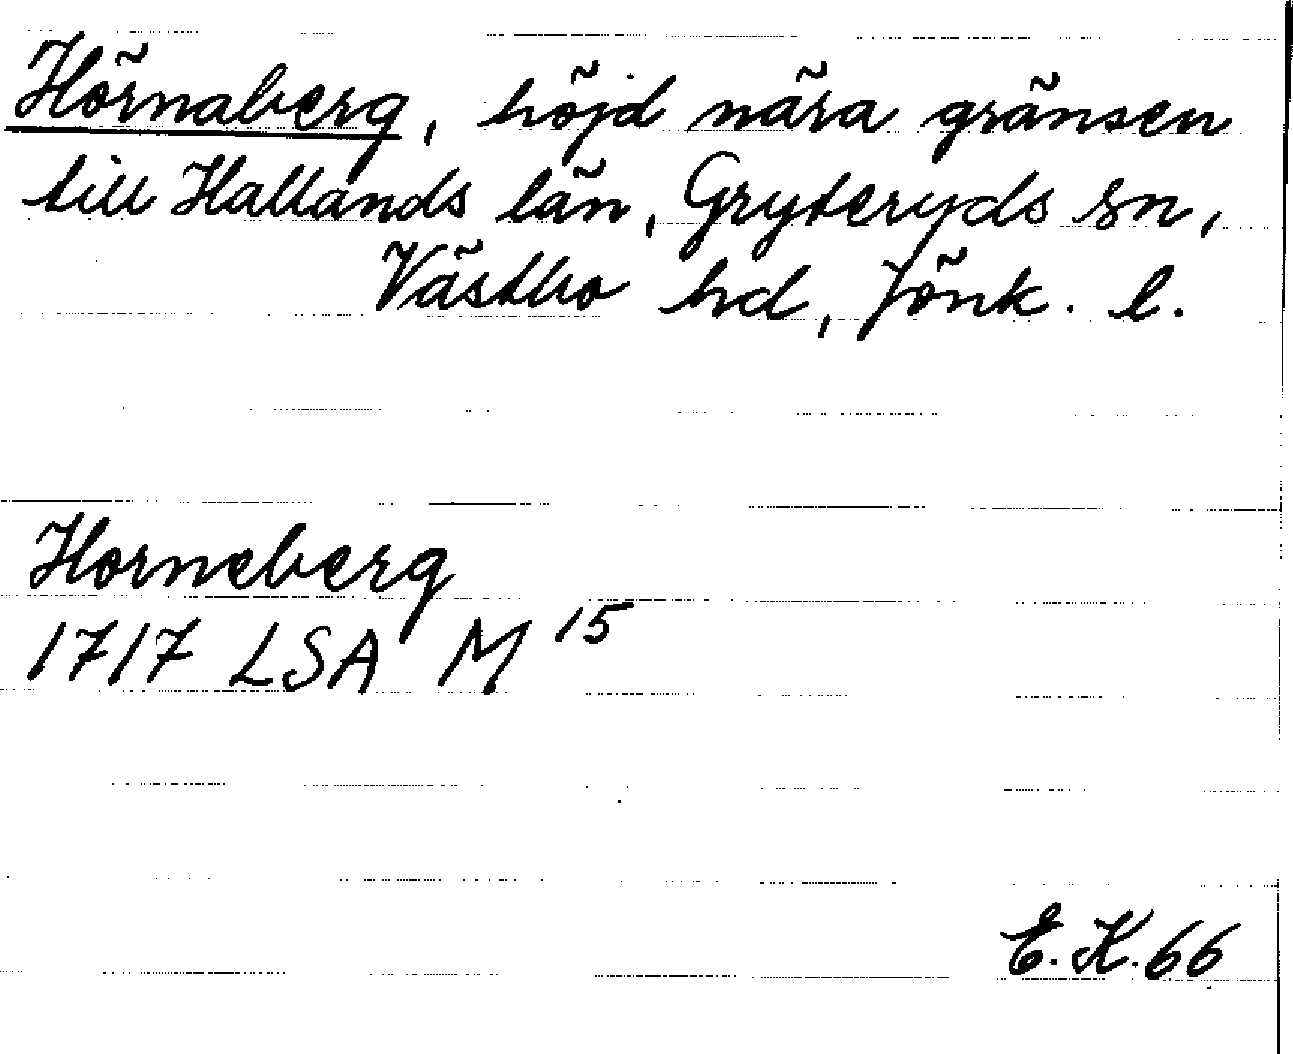 Hörnaberg, höjd nära gränsen
till Hallands län, Gryteryds sn,
Västbo hd, Jönk. l.
Horneberg
1717 LSA M 15
E.K.66